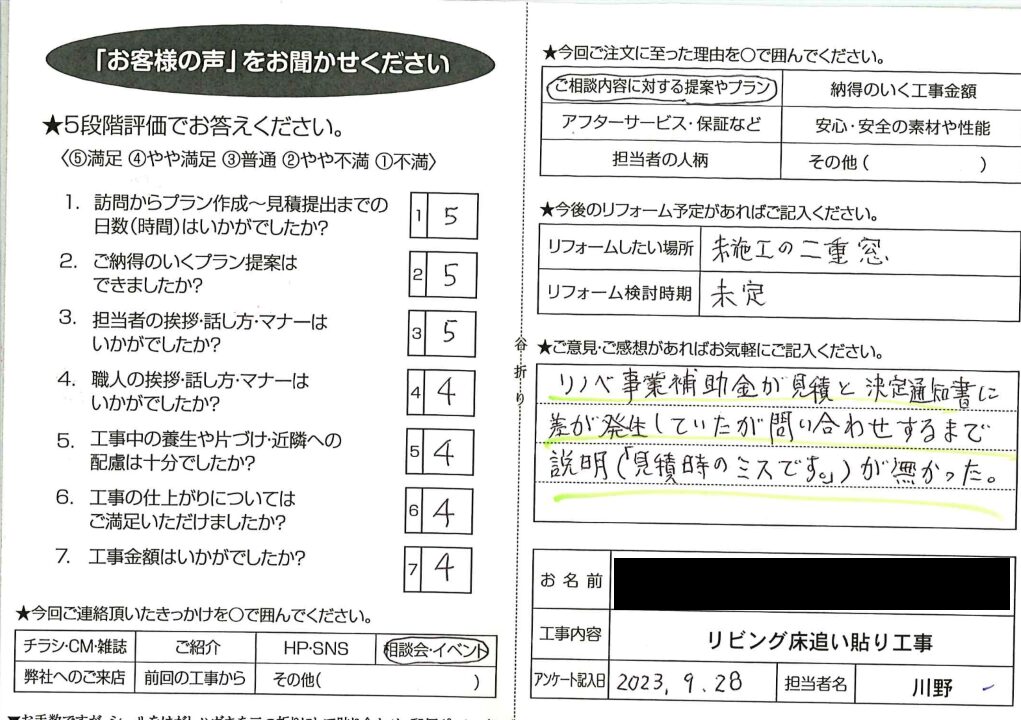 「お客様の声」をお聞かせください
★5段階評価でお答えください。
〈⑤満足 ④やや満足 ③普通 ②やや不満 ①不満〉
1. 訪問からプラン作成～見積提出までの
日数(時間)はいかがでしたか?
1 5
2. ご納得のいくプラン提案は
できましたか?
2 5
3. 担当者の挨拶・話し方・マナーは
いかがでしたか?
3 5
4. 職人の挨拶・話し方・マナーは
いかがでしたか?
4 4
5. 工事中の養生や片づけ・近隣への
配慮は十分でしたか?
5 4
6. 工事の仕上がりについては
ご満足いただけましたか?
6 4
7. 工事金額はいかがでしたか?
7 4
★今回ご連絡頂いたきっかけを○で囲んでください。
チラシ・CM・雑誌 ご紹介 HP・SNS 相談会・イベント
弊社へのご来店 前回の工事から その他( )
谷折り
★今回ご注文に至った理由を○で囲んでください。
ご相談内容に対する提案やプラン 納得のいく工事金額
アフターサービス・保証など 安心・安全の素材や性能
担当者の人柄 その他( )
★今後のリフォーム予定があればご記入ください。
リフォームしたい場所 未施工の二重窓
リフォーム検討時期 未定
★ご意見・ご感想があればお気軽にご記入ください。
リノベ事業補助金が見積と決定通知書に
差が発生していたが問い合わせするまで
説明(「見積時のミスです。」)が無かった。
お名前
工事内容 リビング床追い貼り工事
アンケート記入日 2023.9.28 担当者名 川野